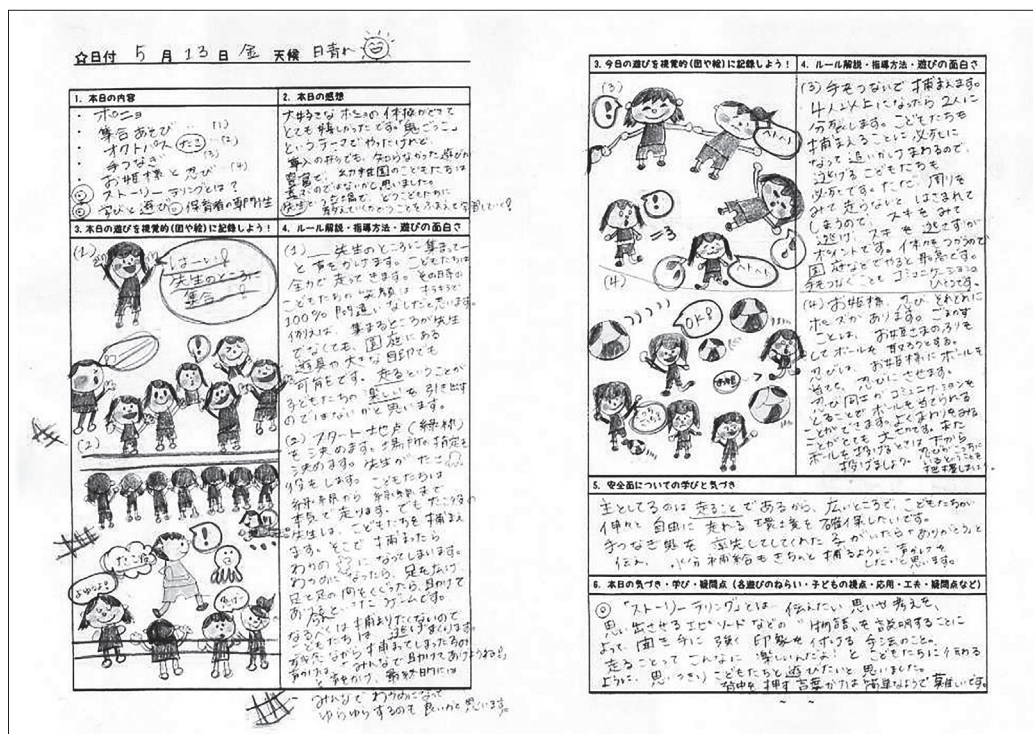 ☆日付 5月13日 金 天候 日青れ
1. 本日の内容
・ポニョ
・集合あそび (1)
・オクトパス たこ (2)
・手つなぎ (3)
・お姫様と忍び (4)
◎ストーリーテリングとは?
◎学びと遊び 保育者の専門性
2. 本日の感想
大好きなポニョの体操ができて
とても嬉しかったです。「鬼ごっこ」
というテーマでやったけれど、
知らなかった遊びが
豊富で、幼稚園のこどもたちは
喜ぶのではないかと思いました。
先生という立場で、どうこどもたちに
教えていくかということをふまえて学習していく!
3. 本日の遊びを視覚的(図や絵)に記録しよう!
(1)
はーい!
先生のところに
集合ー!
(2)
たこだ
4. ルール解説・指導方法・遊びの面白さ
(1) 先生のところに集まってー
と声をかけます。こどもたちは
全力で走ってきます。その時の
こどもたちの笑顔はキラキラで
100%間違いなしだと思います。
例えば、集まるところが先生
でなくても、園庭にある
遊具や大きな目印でも
可能です。走るということが
子どもたちの楽しいを引き出す
のではないかと思います。
(2) スタート地点(緑線)
を決めます。場所の指定も
決めます。先生がたこ
役をします。こどもたちは
緑線から緑線まで
本気で走ります。でもたこ役の
先生は、こどもたちを捕まえ
ます。そこで捕まったら
わかめになってしまいます。
わかめになったら、足を広げ
足と足の間をくぐったら助けて
あげるといったゲームです。
なるべくは捕まりたくないので
こどもたちは逃げまくります。
「みんなで助けてあげようね!」
と声をかけ、最終日には
みんなでわかめになって
ゆらゆらするのも良いかと思います。
3. 今日の遊びを視覚的(図や絵)に記録しよう!
(3)
ヘトヘト
(4)
ヘトヘト
OK!
4. ルール解説・指導方法・遊びの面白さ
(3) 手をつないで捕まえます。
4人以上になったら2人に
分裂します。こどもたちも
捕まえることに必死に
なって追いかけまわるので、
逃げるこどもたちも
必死です。ただ、周りを
みて走らないとはさまれて
しまうので、スキをみて
逃げ、スキを逃さずが
ポイントです。体力をつかうので
園庭などでやると最高です。
手をつなぐこともコミュニケーションの
ひとつです。
(4) お姫様、忍び、それぞれに
ポーズがあります。ごまかす
ことは、お姫さまのふりを
してボールを取ろうとする。
忍びは、お姫様にボールを
当てて、忍びにさせます。
忍び同士がコミュニケーションを
とることでボールを当てられる
ことができます。よくまわりをみる
ことがとても大切です。また
ボールを投げるときは下から
投げましょう。
5. 安全面についての学びと気づき
主としてるのは走ることであるから、広いところで、こどもたちが
伸々と自由に走れる環境を確保したいです。
手つなぎ鬼を率先してしてくれた子がいたら「ありがとう」と
伝え、水分補給もきちんと摂るように声かけを
したいと思います。
6. 本日の気づき・学び・疑問点 (各遊びのねらい・子どもの視点・応用・工夫・疑問点など)
◎「ストーリーテリング」とは、伝えたい思いや考えを、
思い出させるエピソードなどの"物語"を説明することに
よって、聞き手に強く印象を付ける手法のこと。
走ることってこんなに楽しいんだよ!とこどもたちに伝わる
ように、思いっきりこどもたちと遊びたいと思いました。
背中を押す言葉がけは簡単なようで難しいです。